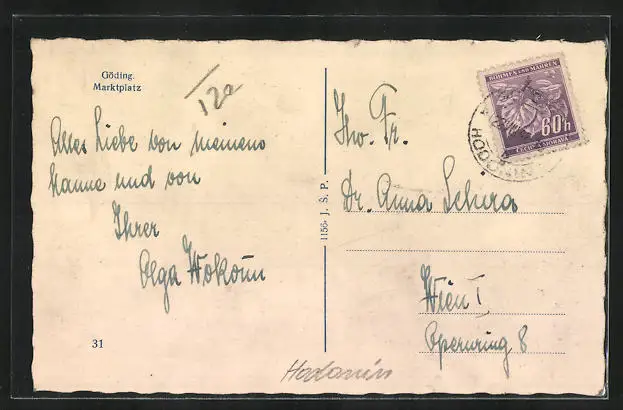 Göding.
Marktplatz
Alles Liebe von meinem
Manne und von
Ihrer
Olga Wokoun
31
1156- J. Š. P.
BÖHMEN UND MÄHREN
60h
ČECHY A MORAVA
HODONÍN
Fr.
Dr. Anna Schira
Wien I
Opernring 8